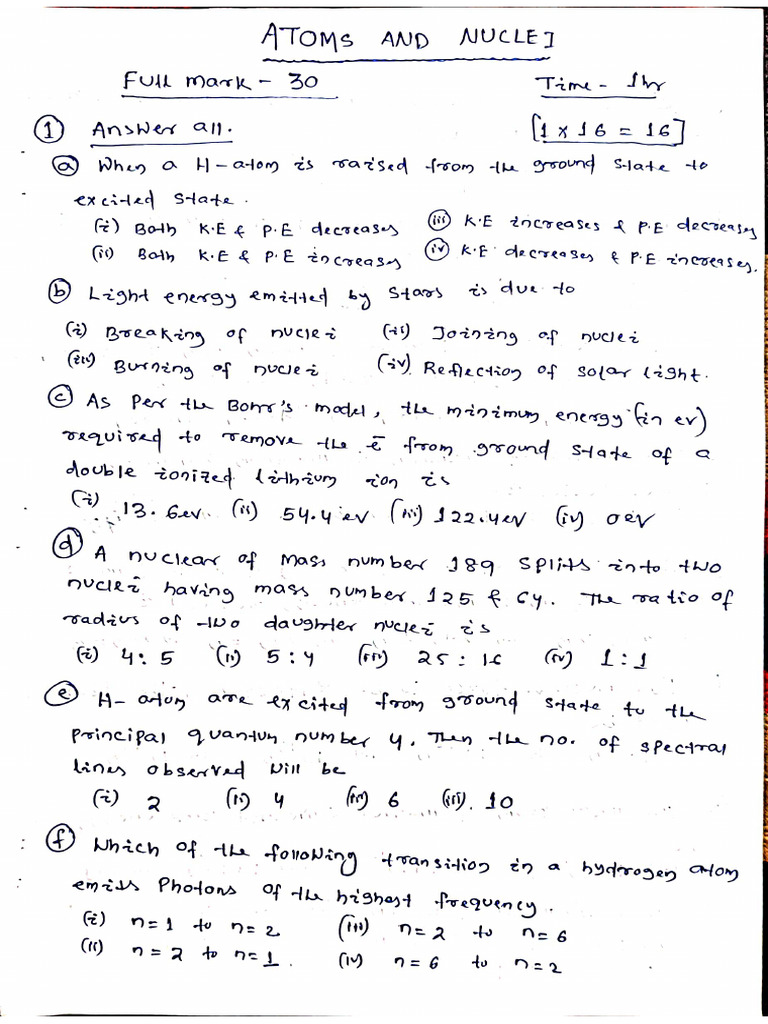 ATOMS AND NUCLEI
Full mark - 30 Time - 1hr
① Answer all. [1 × 16 = 16]
ⓐ When a H-atom is raised from the ground state to
excited state.
(i) Both K.E & P.E decreases (iii) K.E increases & P.E decreases
(ii) Both K.E & P.E increases (iv) K.E decreases & P.E increases.
ⓑ Light energy emitted by stars is due to
(i) Breaking of nuclei (ii) Joining of nuclei
(iii) Burning of nuclei (iv) Reflection of solar light.
ⓒ As per the Bohr's model, the minimum energy (in ev)
required to remove the ē from ground state of a
double ionized lithium ion is
(i) 13.6ev (ii) 54.4 ev (iii) 122.4ev (iv) 0ev
ⓓ A nuclear of mass number 189 splits into two
nuclei having mass number 125 & 64. The ratio of
radius of two daughter nuclei is
(i) 4:5 (ii) 5:4 (iii) 25:16 (iv) 1:1
ⓔ H-atom are excited from ground state to the
principal quantum number 4. Then the no. of spectral
lines observed will be
(i) 2 (ii) 4 (iii) 6 (iii). 10
ⓕ Which of the following transition in a hydrogen atom
emits photons of the highest frequency.
(i) n=1 to n=2 (iii) n=2 to n=6
(ii) n=2 to n=1. (iv) n=6 to n=2